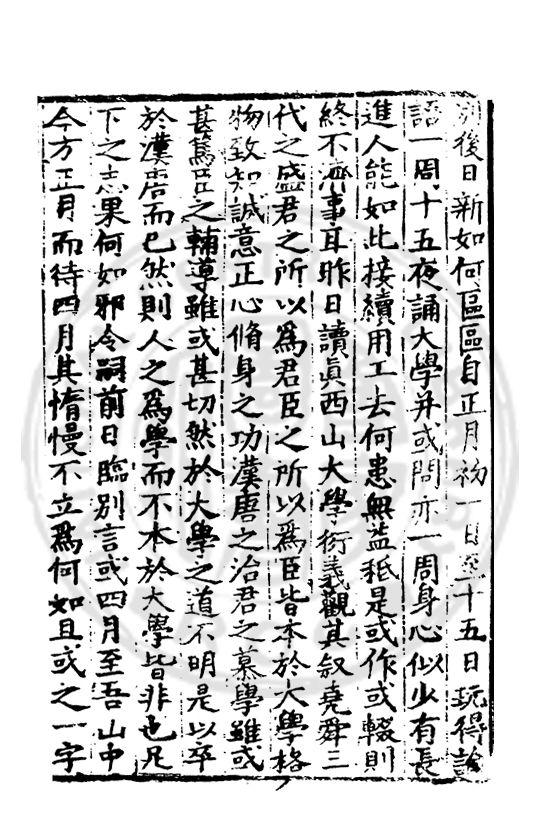 別後日新如何區區自正月初一日至十五日玩得論
語一周十五夜誦大學并或問亦一周身心似少有長
進人能如此接續用工去何患無益秪是或作或輟則
終不濟事耳昨日讀眞西山大學衍義觀其叙堯舜三
代之盛君之所以爲君臣之所以爲臣皆本於大學格
物致知誠意正心脩身之功漢唐之治君之慕學雖或
甚篤臣之輔導雖或甚切然於大學之道不明是以卒
於漢唐而已然則人之爲學而不本於大學皆非也足
下之志果何如邪令嗣前日臨別言或四月至吾山中
今方正月而待四月其惰慢不立爲何如且或之一字